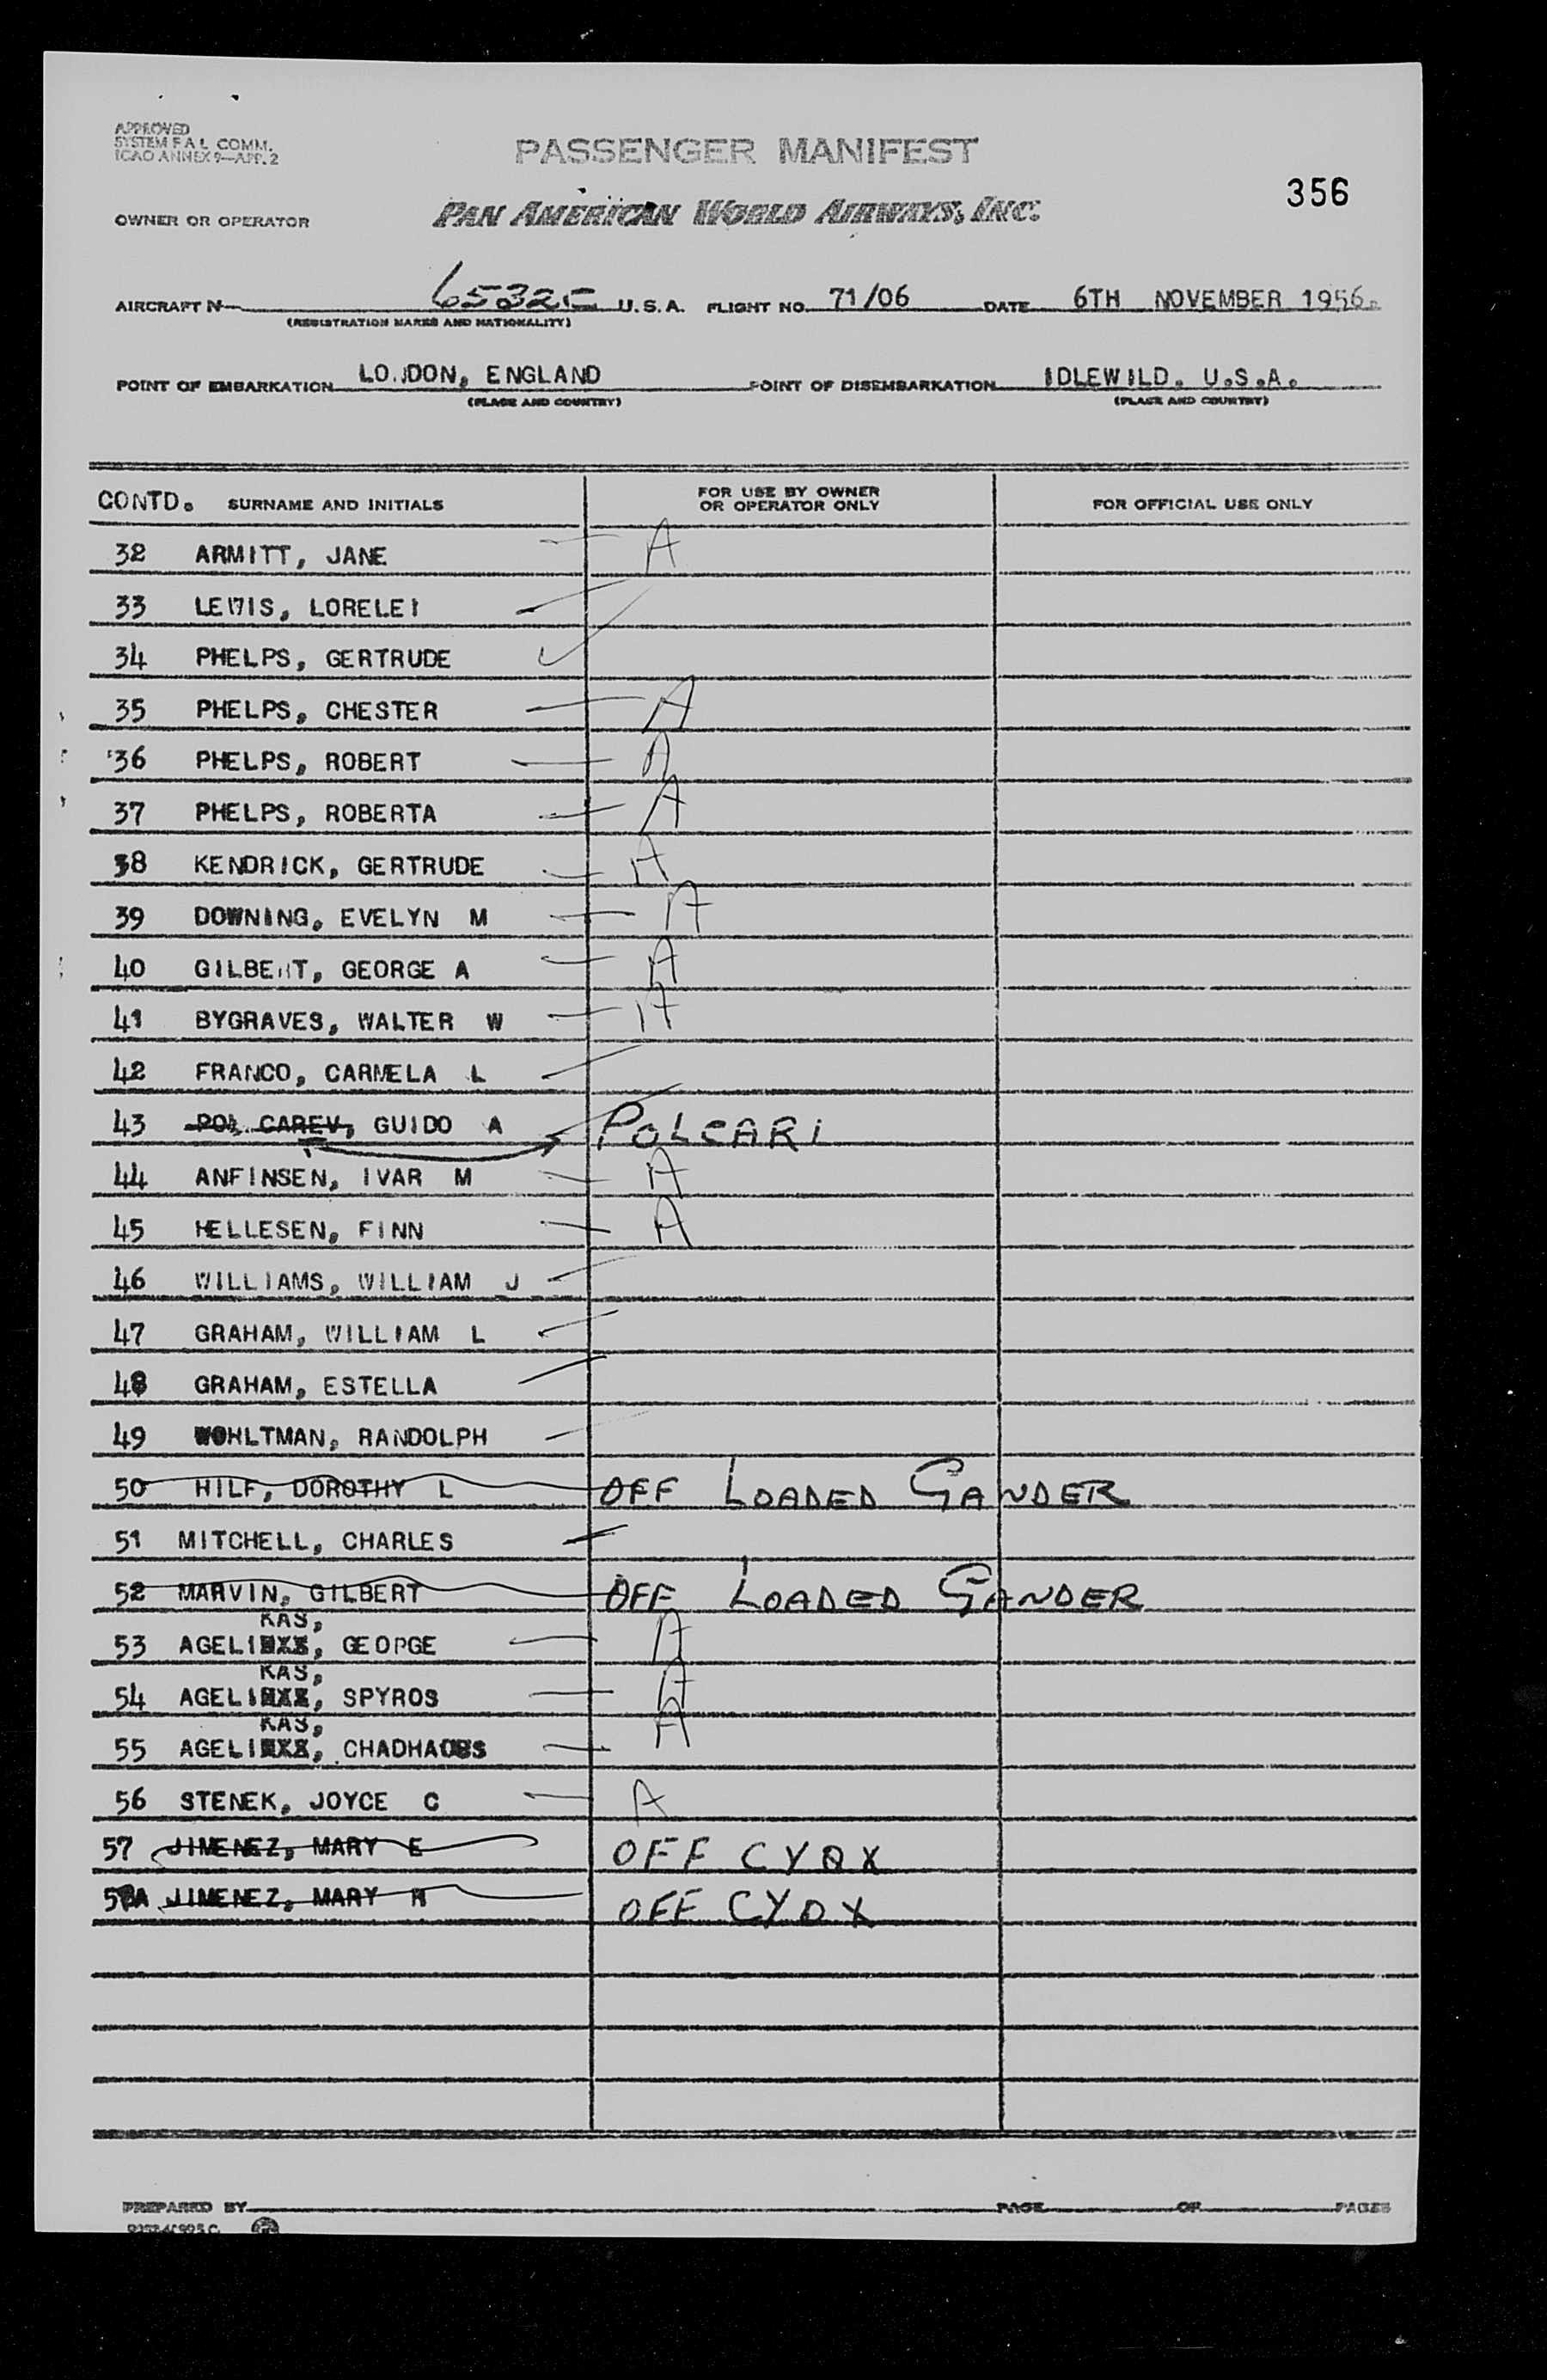 APPROVED
SYSTEM F A L COMM.
ICAO ANNEX 9—APP. 2
PASSENGER MANIFEST
356
OWNER OR OPERATOR PAN AMERICAN WORLD AIRWAYS, INC.
AIRCRAFT N 6532C U.S.A. FLIGHT NO. 71/06 DATE 6TH NOVEMBER 1956.
(REGISTRATION MARKS AND NATIONALITY)
POINT OF EMBARKATION LONDON, ENGLAND POINT OF DISEMBARKATION IDLEWILD. U.S.A.
(PLACE AND COUNTRY) (PLACE AND COUNTRY)
CONTD. SURNAME AND INITIALS FOR USE BY OWNER OR OPERATOR ONLY FOR OFFICIAL USE ONLY
32 ARMITT, JANE A
33 LEWIS, LORELEI
34 PHELPS, GERTRUDE
35 PHELPS, CHESTER A
36 PHELPS, ROBERT A
37 PHELPS, ROBERTA A
38 KENDRICK, GERTRUDE A
39 DOWNING, EVELYN M A
40 GILBERT, GEORGE A A
41 BYGRAVES, WALTER W A
42 FRANCO, CARMELA L
43 POL CAREV, GUIDO A POLCARI
44 ANFINSEN, IVAR M A
45 HELLESEN, FINN A
46 WILLIAMS, WILLIAM J
47 GRAHAM, WILLIAM L
48 GRAHAM, ESTELLA
49 WOHLTMAN, RANDOLPH
50 HILF, DOROTHY L OFF LOADED GANDER
51 MITCHELL, CHARLES
52 MARVIN, GILBERT OFF LOADED GANDER
KAS,
53 AGELI, GEORGE A
KAS,
54 AGELI, SPYROS A
KAS,
55 AGELI, A
56 STENEK, JOYCE C A
57 JIMENEZ, MARY E OFF CYQX
JIMENEZ, MARY R OFF CYQX
PREPARED BY PAGE OF PAGES